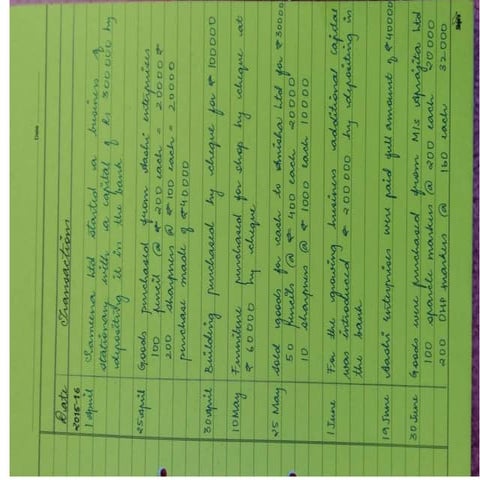 Date Transactions
2015-16
1 April Chameena Ltd started a business of
stationary with a capital of Rs 300000 by
depositing it in the bank
25 April Goods purchased from Aashi enterprises
100 pencil @ ₹ 200 each = 20000 ₹
200 sharpners @ ₹ 100 each = 20000
purchase made of ₹40000
30 April Building purchased by cheque for ₹ 100000
10 May Furniture purchased for shop by cheque at
₹ 60000 by cheque
25 May Sold goods for cash to Anisha Ltd for ₹30000
50 pencils @ ₹ 400 each 20000
10 sharpners @ ₹ 1000 each 10000
1 June For the growing business additional capital
was introduced ₹ 200000 by depositing in
the bank
19 June Aashi enterprises were paid full amount of ₹40000
30 June Goods were purchased from M/s Aprajita Ltd
100 sparcle markers @ 200 each 20000
200 DHP markers @ 160 each 32000